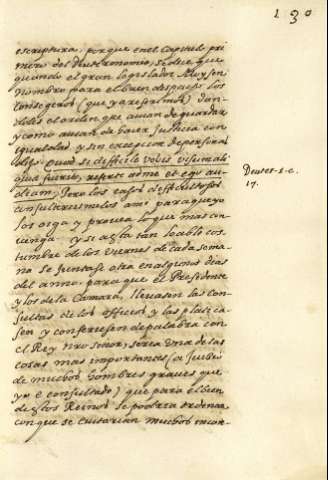 130
escriptura, porque en el capitulo pri
mero del Deuteronomio, se dice que
quando el gran legislador Muysen
nombro para el buen despacho los
consegeros (que ya referimos) dan
doles el orden que avian de guardar
y como avian de hacer justicia con
igualdad y sin excepcion de personas
dijo, Quod si dificile vobis visum ali
quid fuerit, referte ad me et ego au
diam. Pero los casos dificultosos
consultaréismelos a mi para que yo
los oiga y provea lo que mas con
venga. y si a esta tan loable cos
tumbre de los viernes de cada sema
na se juntase otra en algunos dias
del anno, para que el Presidente
y los de la Camara, llevasen las con
sultas de los officios y las platica
sen y confiriesen de palabra con
el Rey nro señor, seria una de las
cosas mas importantes (a juicio
de muchos hombres graves que
yo e consultado) que para el bien
destos Reinos se podria ordenar
con que se evitarian muchos incon-
Deuter. 1. c.
17.